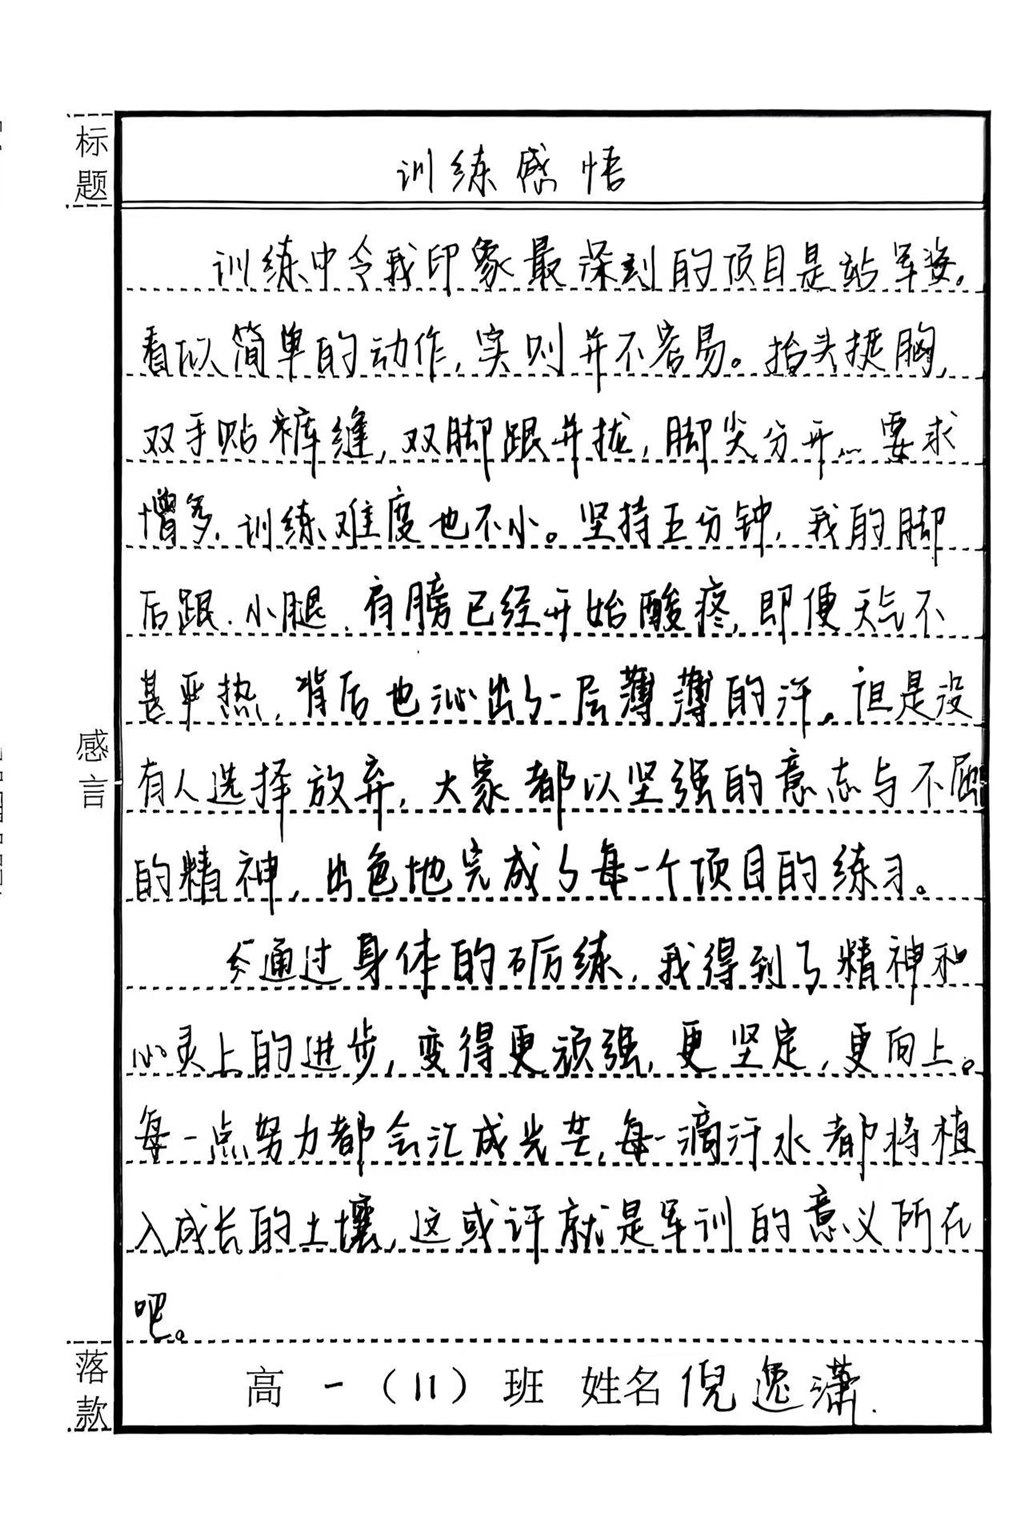 标题
训练感悟
训练中令我印象最深刻的项目是站军姿。
看似简单的动作，实则并不容易。抬头挺胸，
双手贴裤缝，双脚跟并拢，脚尖分开…要求
增多，训练难度也不小。坚持五分钟，我的脚
后跟、小腿、肩膀已经开始酸疼，即便天气不
甚严热，背后也沁出了一层薄薄的汗。但是没
有人选择放弃，大家都以坚强的意志与不屈
的精神，出色地完成了每一个项目的练习。
通过身体的砺练，我得到了精神和
心灵上的进步，变得更顽强，更坚定，更向上。
每一点努力都会汇成光芒，每一滴汗水都将植
入成长的土壤，这或许就是军训的意义所在
吧。
感言
落款
高一（11）班 姓名 倪逸潇